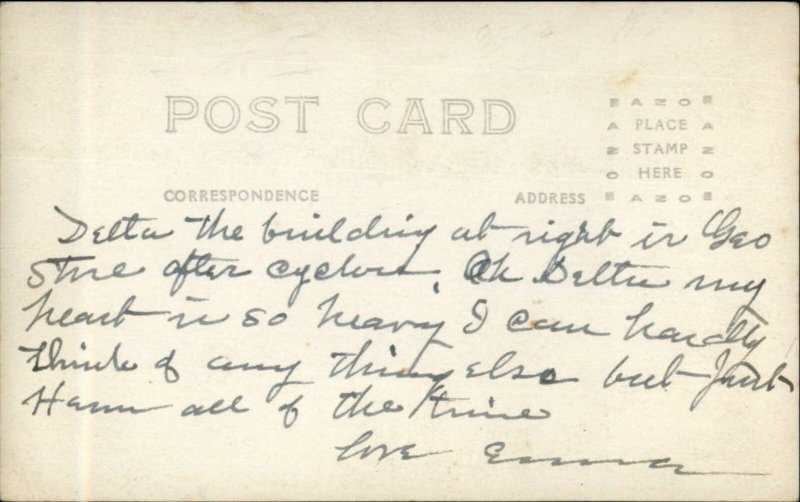 POST CARD
AZO
PLACE
STAMP
HERE
AZO
CORRESPONDENCE ADDRESS
Delta the building at right is Geo
Store after cyclone. Oh Delta my
heart is so heavy I can hardly
think of any thing else but just
all of the time
love Emma